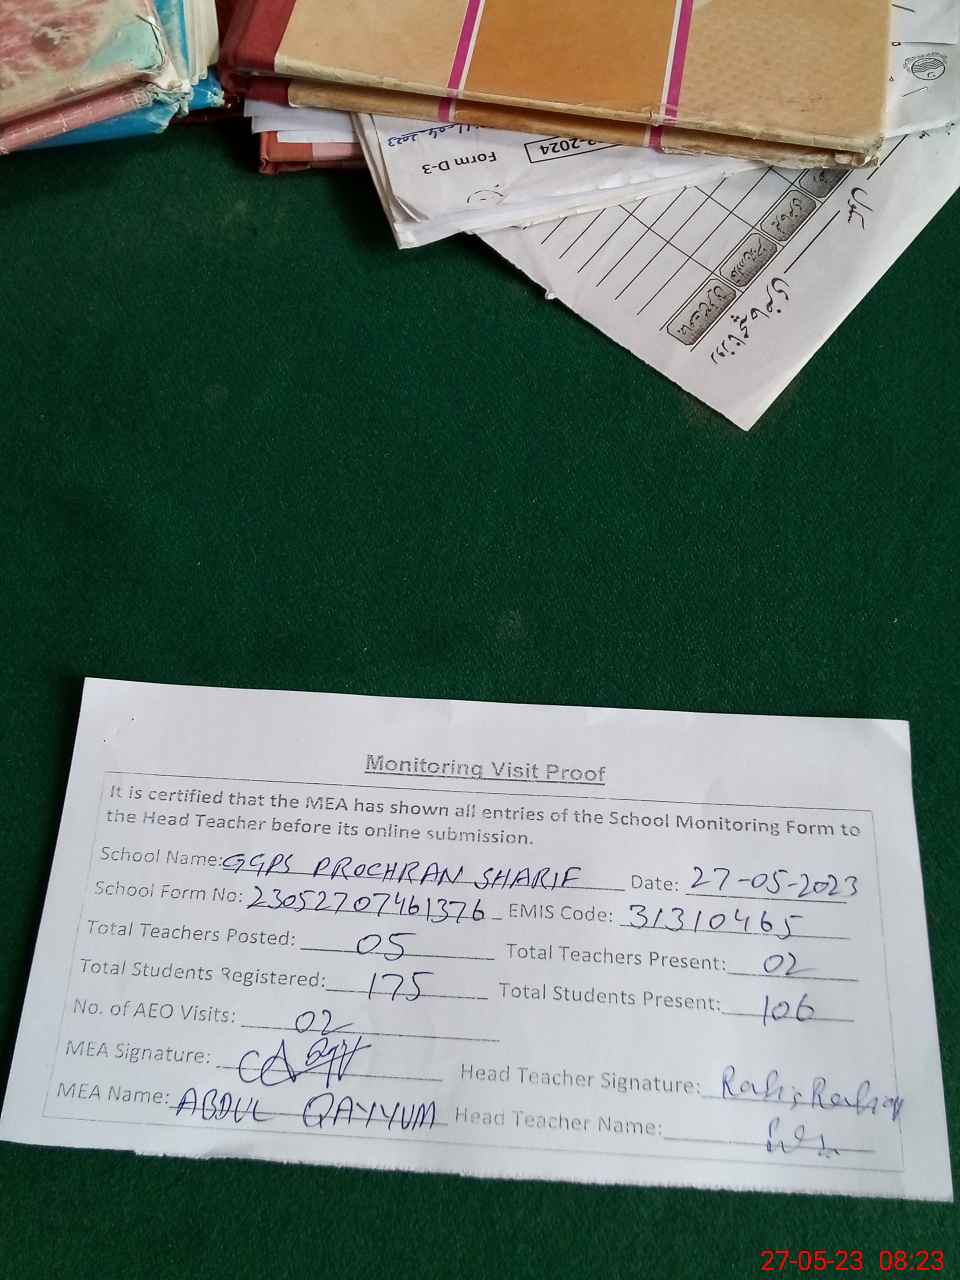 2023
Form D-3
-2024
سکول
روزنامچہ حاضری
Monitoring Visit Proof
It is certified that the MEA has shown all entries of the School Monitoring Form to
the Head Teacher before its online submission.
School Name: GGPS PROCHRAN SHARIF Date: 27-05-2023
School Form No: 23052707461376 EMIS Code: 31310465
Total Teachers Posted: 05 Total Teachers Present: 02
Total Students Registered: 175 Total Students Present: 106
No. of AEO Visits: 02
MEA Signature: Head Teacher Signature:
MEA Name: ABDUL QAYYUM Head Teacher Name:
27-05-23 08:23